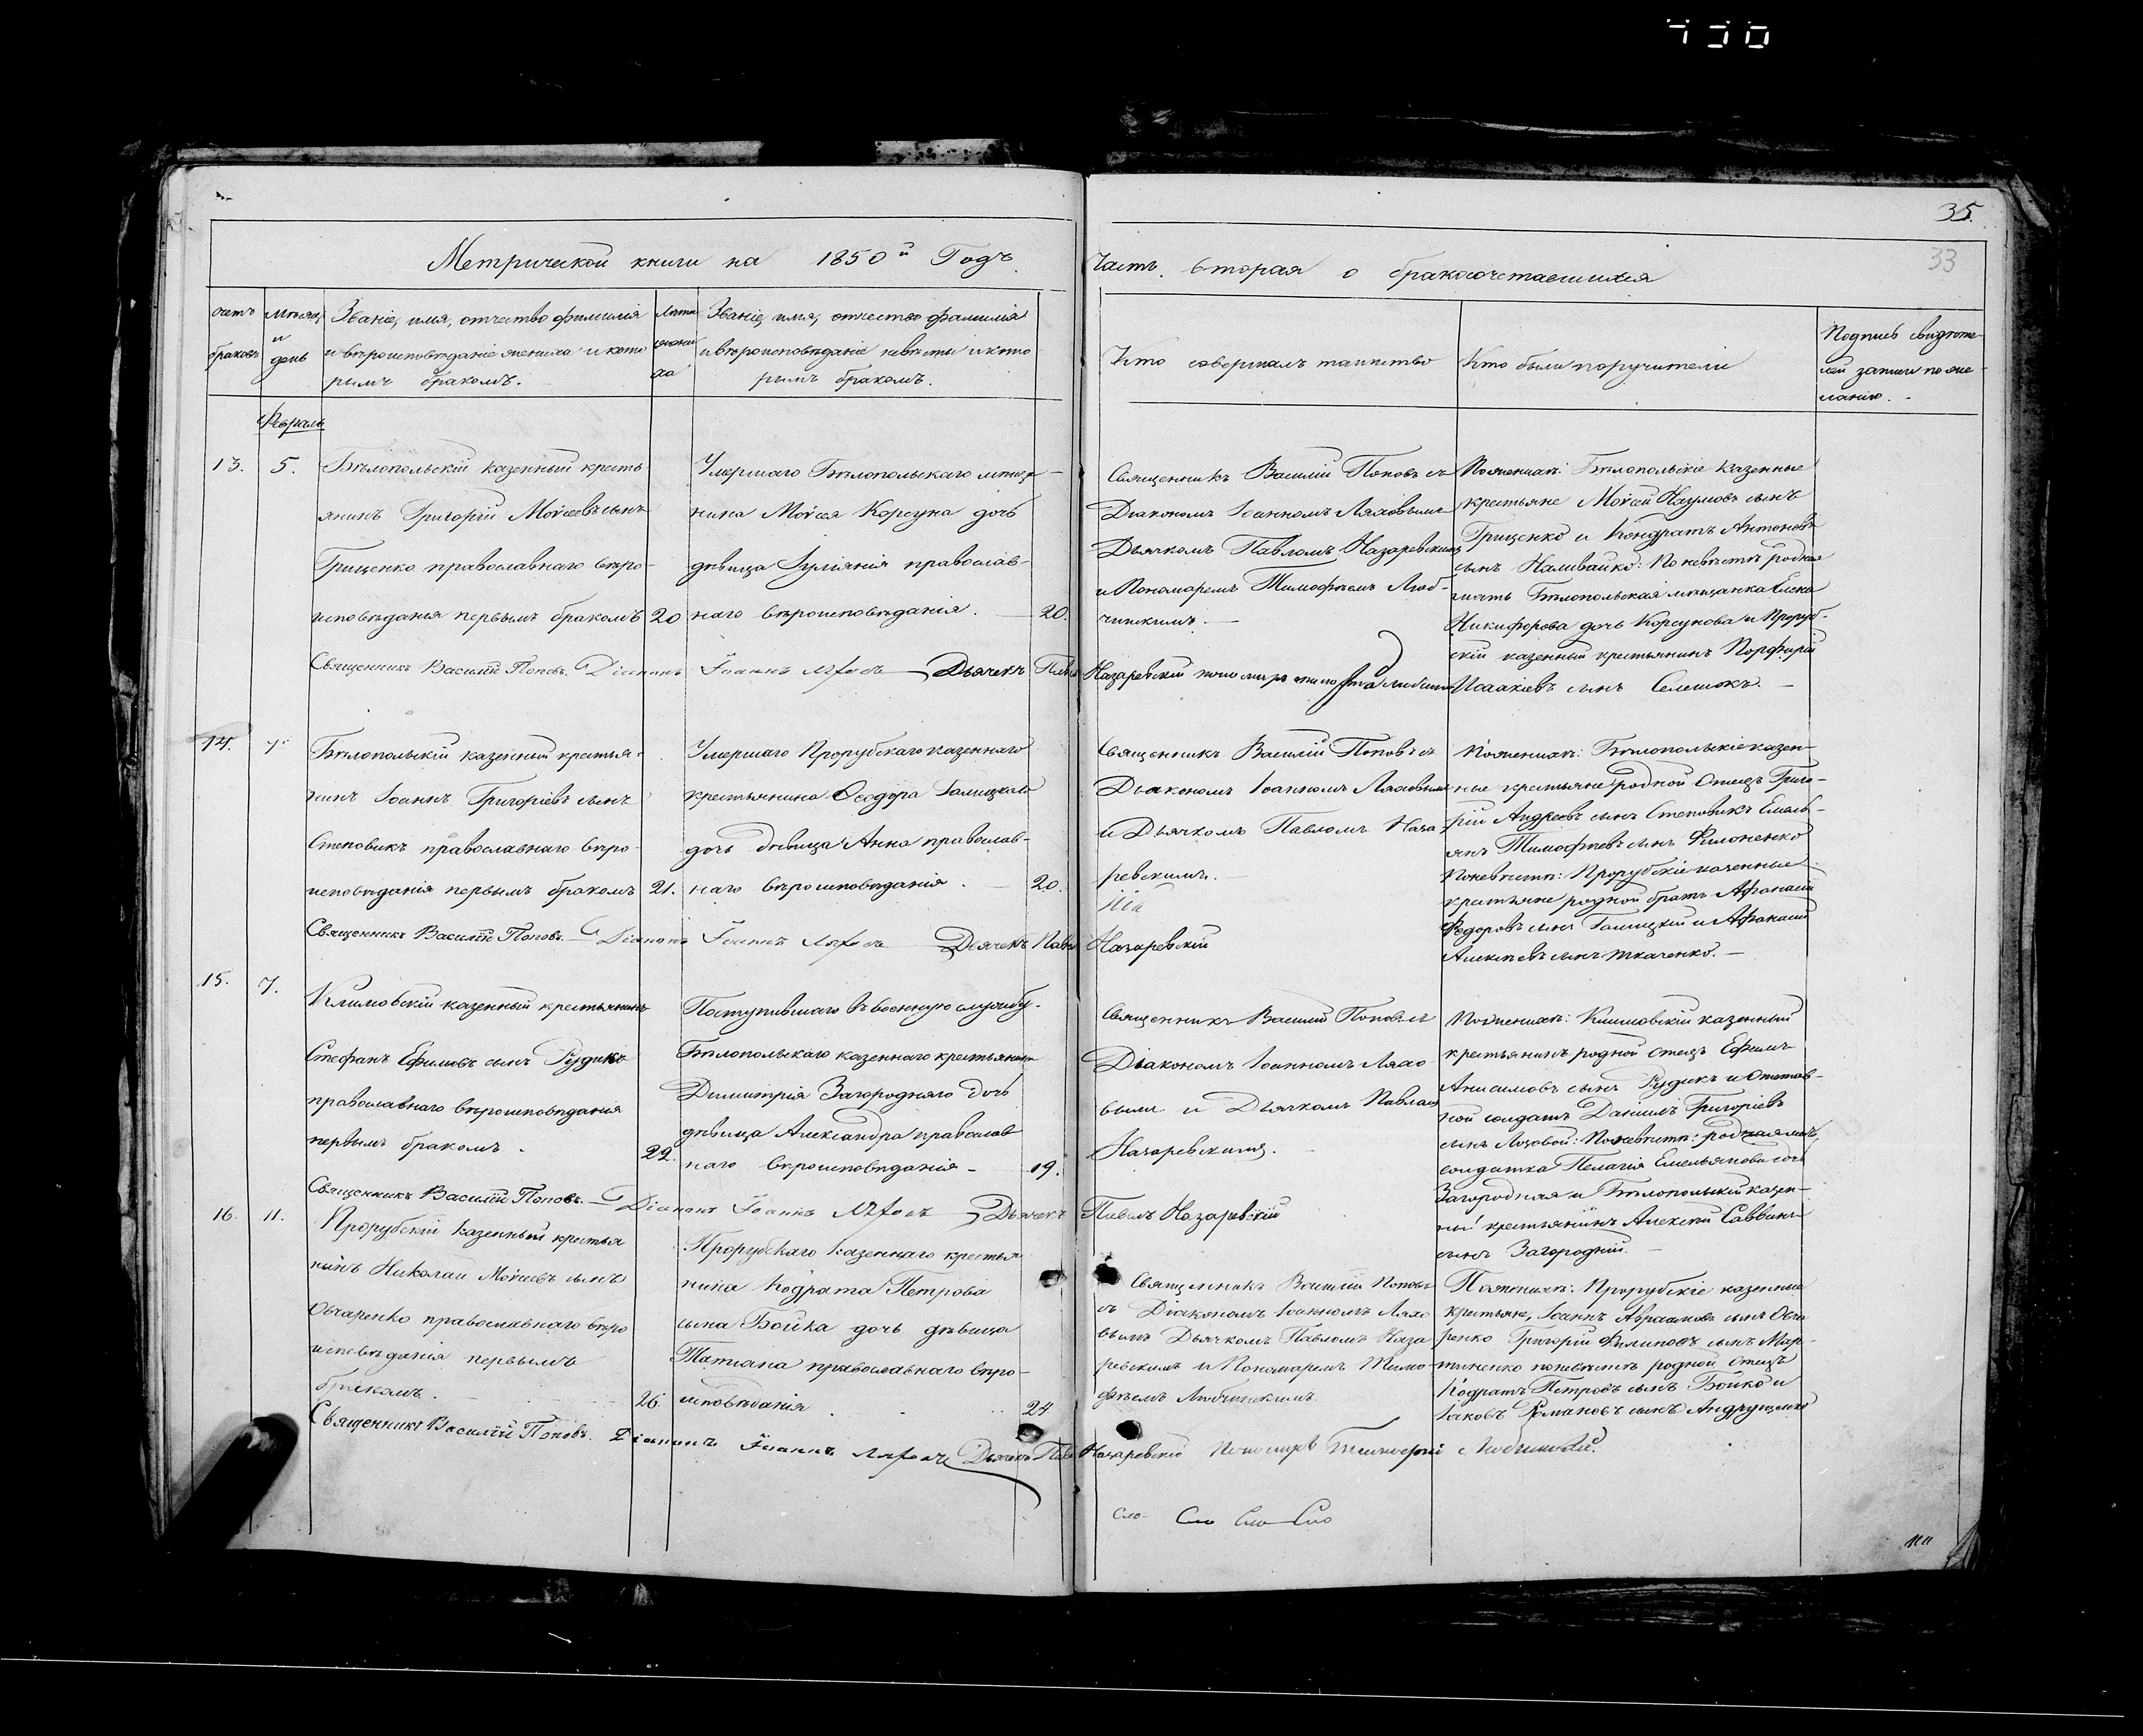 35.
33
Метрической книги на 1850й Годъ
Часть вторая о бракосочетавшихся
Счетъ браковъ
Мѣсяцъ и день
Званіе, имя, отчество фамилія
и вѣроисповѣданіе жениха и кото
рымъ бракомъ.
Лѣта жени ха
Званіе, имя, отчество фамилія
и вѣроисповѣданіе невѣсты и кото
рымъ бракомъ.
Кто совершалъ таинство
Кто были поручители
Подпись свидѣте-
лей записи по же-
ланію.
Февраль
13.
5.
Бѣлопольскій казенный кресть
янинъ Григорій Моѵсеевъ сынъ
Грищенко православнаго вѣро-
исповѣданія первымъ бракомъ
20
Умершаго Бѣлопольскаго мѣща-
нина Моѵсея Корсуна дочь
дѣвица Іуліянія православ-
наго вѣроисповѣданія.
20.
Священникъ Василій Поповъ съ
Діакономъ Іоанномъ Ляховымъ
Дьячкомъ Павломъ Назаревскимъ
и Пономаремъ Тимофѣемъ Люб-
чинскимъ.
По женихѣ: Бѣлопольскіе казенные
крестьяне Моѵсей Наумовъ сынъ
Грищенко и Кондратъ Антоновъ
сынъ Наливайко: По невѣстѣ родная
мать Бѣлопольская мѣщанка Елена
Никифорова дочь Корсунова и Проруб-
скій казенный крестьянинъ Порфирій
Исаакіевъ сынъ Селешокъ.
Священникъ Василій Поповъ. Діаконъ Іоаннъ Ляховъ Дьячекъ Павелъ Назаревскій
14.
7.
Бѣлопольскій казенный крестья-
нинъ Іоаннъ Григоріевъ сынъ
Степовикъ православнаго вѣро-
исповѣданія первымъ бракомъ
21.
Умершаго Прорубскаго казеннаго
крестьянина Ѳеодора Галицкаго
дочь дѣвица Анна православ-
наго вѣроисповѣданія.
20.
Священникъ Василій Поповъ съ
Діакономъ Іоанномъ Ляховымъ
и Дьячкомъ Павломъ Наза
ревскимъ.
По женихѣ: Бѣлопольскіе казен-
ные крестьяне родной Отецъ Григо-
рій Андреевъ сынъ Степовикъ Емель-
янъ Тимофѣевъ сынъ Филоненко
По невѣстѣ: Прорубскіе казенные
крестьяне родной братъ Афанасій
Федоровъ сынъ Галицкій и Афанасій
Алексѣевъ сынъ Ткаченко.
Священникъ Василій Поповъ. Діаконъ Іоаннъ Ляховъ Дьячекъ Павелъ Назаревскій
15.
7.
Климовскій казенный крестьянинъ
Стефанъ Ефимовъ сынъ Рудикъ
православнаго вѣроисповѣданія
первымъ бракомъ.
22.
Поступившаго въ военную службу
Бѣлопольскаго казеннаго крестьянина
Димитрія Загородняго дочь
дѣвица Александра православ
наго вѣроисповѣданія
19.
Священникъ Василій Поповъ съ
Діакономъ Іоанномъ Ляхо
вымъ и Дьячкомъ Павломъ
Назаревскимъ.
По женихѣ: Климовскій казенный
крестьянинъ родной отецъ Ефимъ
Анисимовъ сынъ Рудикъ и Отстав-
ной солдатъ Даніилъ Григоріевъ
сынъ Лозовой: По невѣстѣ: родная мать
солдатка Пелагія Емельянова дочь
Загородняя и Бѣлопольскій казен-
ный крестьянинъ Алексѣй Саввинъ
сынъ Загородній.
Священникъ Василій Поповъ. Діаконъ Іоаннъ Ляховъ Дьячекъ Павелъ Назаревскій
16.
11.
Прорубскій казенный крестья
нинъ Николай Моѵсеевъ сынъ
Овчаренко православнаго вѣро
исповѣданія первымъ
бракомъ.
26.
Прорубскаго казеннаго крестья
нина Кодрата Петрова
сына Бойка дочь дѣвица
Татиана православнаго вѣро-
исповѣданія
24
Священникъ Василій Поповъ
съ Діакономъ Іоанномъ Ляхо
вымъ Дьячкомъ Павломъ Наза
ревскимъ и Пономаремъ Тимо-
фѣемъ Любчинскимъ.
По женихѣ: Прорубскіе казенные
крестьяне, Іоаннъ Авраамовъ сынъ Овча
ренко Григорій Филиповъ сынъ Мар-
тиненко по невѣстѣ родной Отецъ
Кодратъ Петровъ сынъ Бойко и
Іаковъ Романовъ сынъ Андрущенко
Священникъ Василій Поповъ. Діаконъ Іоаннъ Ляховъ Дьячекъ Павелъ Назаревскій Пономарь Тимофей Любчинскій.